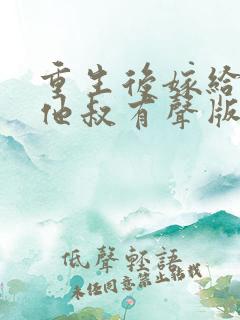 重生後嫁給
他叔有聲版
低聲輕語
未经同意禁止转载